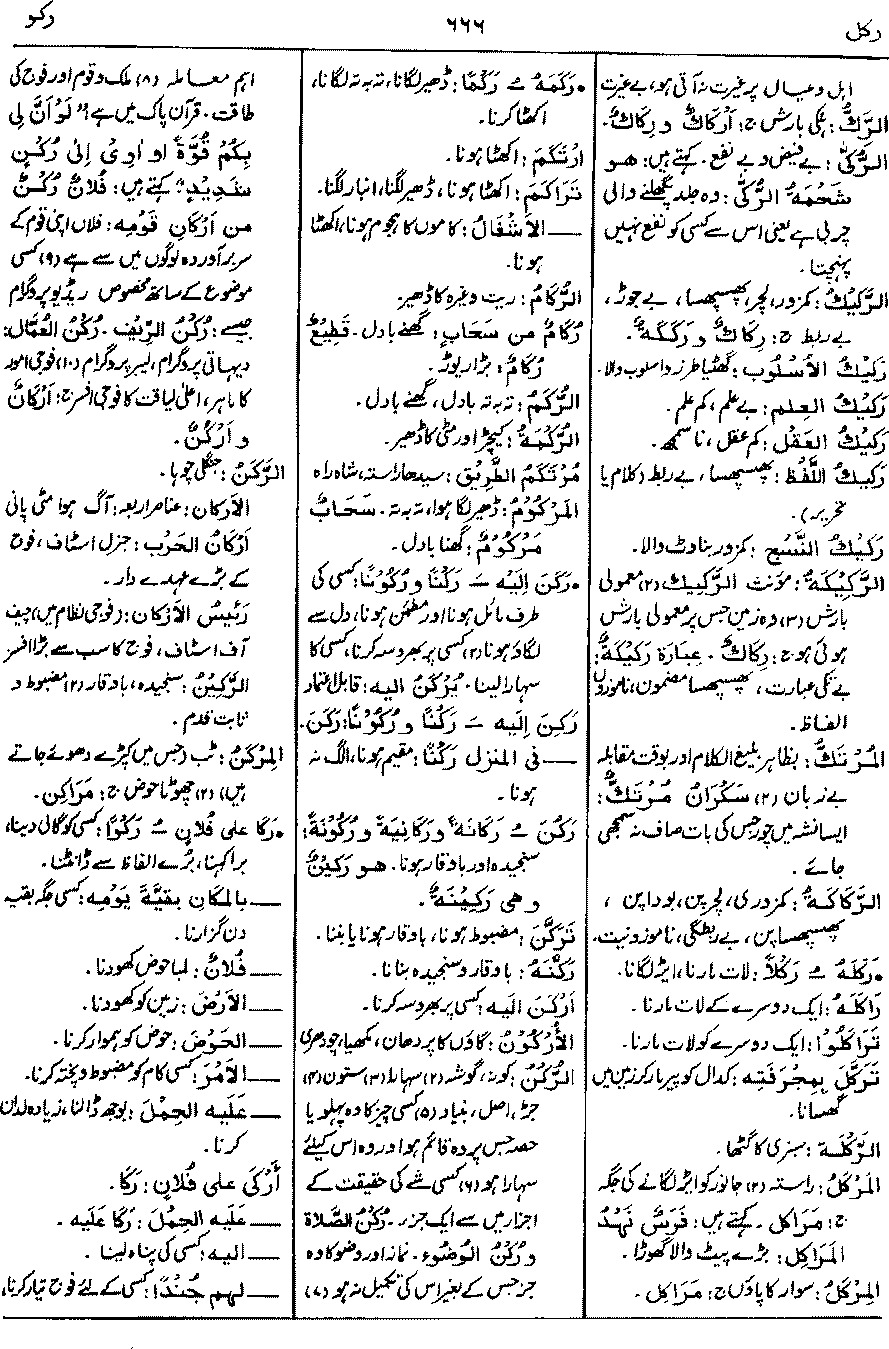 رکل
۶۶۶
رکو
اہل و عیال پر غیرت نہ آتی ہو، بے غیرت
الرَّكُّ: ہلکی بارش ج: أَرْكَاكٌ و رِكَاكٌ۔
الرُّكّٰى: بے فیض و بے نفع۔ کہتے ہیں: هو
شَحْمَةُ الرُّكّٰى: وہ جلد پگھلنے والی
چربی ہے یعنی اس سے کسی کو نفع نہیں
پہنچتا۔
الرَّكِيكُ: کمزور، لچر، پھسپھسا، بے جوڑ،
بے ربط ج: رِكَاكٌ و رَكَكَةٌ۔
رَكِيكُ الأُسْلُوبِ: گھٹیا طرز و اسلوب والا۔
رَكِيكُ العِلمِ: بے علم، کم علم۔
رَكِيكُ العَقْلِ: کم عقل، ناسمجھ۔
رَكِيكُ اللَّفْظِ: پھسپھسا، بے ربط (کلام یا
تحریر)۔
رَكِيكُ النَّسْجِ: کمزور بناوٹ والا۔
الرَّكِيكَةُ: مؤنث الرَّكِيكُ (۲) معمولی
بارش (۳) وہ زمین جس پر معمولی بارش
ہوئی ہو ج: رِكَاكٌ۔ عِبَارَة رَكِيكَةٌ:
بے تکی عبارت، پھسپھسا مضمون، ناموزوں
الفاظ۔
المُرْتَكُّ: بظاہر بلیغ الکلام اور بوقت مقابلہ
بے زبان (۲) سَكْرَانُ مُرْتَكٌّ:
ایسا نشہ میں چور جس کی بات صاف نہ سمجھی
جائے۔
الرَّكَاكَةُ: کمزوری، لچرپن، بوداپن،
پھسپھساپن، بے ربطگی، ناموزونیت۔
•رَكَلَهُ ـُ رَكْلاً: لات مارنا، ایڑ لگانا۔
رَاكَلَهُ: ایک دوسرے کے لات مارنا۔
تَرَاكَلُوا: ایک دوسرے کو لات مارنا۔
تَرَكَّلَ بِمِجْرَفَتِه: کدال کو پیر مار کر زمین میں
گھسانا۔
الرَّكْلَة: سبزی کا گٹھا۔
المَرْكَلُ: راستہ (۲) جانور کو ایڑ لگانے کی جگہ
ج: مَرَاكِل۔ کہتے ہیں: فَرَسٌ نَهْدُ
المَرَاكِل: بڑے پیٹ والا گھوڑا۔
المِرْكَلُ: سوار کا پاؤں ج: مَرَاكِل۔
•رَكَمَهُ ـُ رَكْمًا: ڈھیر لگانا، تہ بہ تہ لگانا،
اکٹھا کرنا۔
ارْتَكَمَ: اکٹھا ہونا۔
تَرَاكَمَ: اکٹھا ہونا، ڈھیر لگنا، انبار لگنا۔
ــ الأَشْغَالُ: کاموں کا ہجوم ہونا، اکٹھا
ہونا۔
الرُّكَامُ: ریت وغیرہ کا ڈھیر۔
رُكَامٌ من سَحَابٍ: گھنے بادل۔ قَطِيعٌ
رُكَامٌ: بڑا ریوڑ۔
الرَّكَمُ: تہ بہ تہ بادل، گھنے بادل۔
الرُّكْمَةُ: کیچڑ اور مٹی کا ڈھیر۔
مُرْتَكَمُ الطَّرِيْقِ: سیدھا راستہ، شاہ راہ
المَرْكُوْمُ: ڈھیر لگا ہوا، تہ بہ تہ۔ سَحَابٌ
مَرْكُومٌ: گھنا بادل۔
•رَكَنَ إلَيْه ـَ رَكْنًا و رُكُونًا: کسی کی
طرف مائل ہونا اور مطمئن ہونا، دل سے
لگاؤ ہونا (۲) کسی پر بھروسہ کرنا، کسی کا
سہارا لینا۔ يُرْكَنُ اليه: قابل اعتماد
رَكِنَ إليه ـَ رَكْنًا و رُكُوْنًا: رَكَنَ۔
ــ فى المنزل رَكْنًا: مقیم ہونا، الگ نہ
ہونا۔
رَكُنَ ـُ رَكَانَةً و رَكَانِيَةً و رُكُونَةً:
سنجیدہ اور باوقار ہونا۔ هو رَكِيْنٌ
و هى رَكِيْنَةٌ۔
تَرَكَّنَ: مضبوط ہونا، باوقار ہونا یا بننا۔
رَكَّنَهُ: باوقار و سنجیدہ بنانا۔
أَرْكَنَ اليه: کسی پر بھروسہ کرنا۔
الأُرْكُوْنُ: گاؤں کا پردھان، مکھیا، چودھری
الرُّكْنُ: کونہ، گوشہ (۲) سہارا (۳) ستون (۴)
جڑ، اصل، بنیاد (۵) کسی چیز کا وہ پہلو یا
حصہ جس پر وہ قائم ہو اور وہ اس کیلئے
سہارا ہو (۶) کسی شے کی حقیقت کے
اجزا میں سے ایک جزر۔ رُكْنُ الصَّلاَة
و رُكْنُ الوُضُوءِ۔ نماز اور وضو کا وہ
جز جس کے بغیر اس کی تکمیل نہ ہو (۷)
اہم معاملہ (۸) ملک و قوم اور فوج کی
طاقت۔ قرآن پاک میں ہے: "لَوْ أَنَّ لِى
بِكُمْ قُوَّةً او اوِىْ اِلىٰ رُكْنٍ
شَدِيْدٍ" کہتے ہیں: فُلَانٌ رُكْنٌ
من أَرْكَانِ قَوْمِه: فلاں اپنی قوم کے
سربر آوردہ لوگوں میں سے ہے (۹) کسی
موضوع کے ساتھ مخصوص ریڈیو پروگرام
جیسے: رُكْنُ الرِّيْفِ۔ رُكْنُ العُمَّالِ:
دیہاتی پروگرام، لیبر پروگرام (۱۰) فوجی امور
کا ماہر، اعلیٰ لیاقت کا فوجی افسر ج: أَرْكَانٌ
و أَرْكُنٌ۔
الرَّكْنُ: جنگلی چوہا۔
الأَرْكان: عناصر اربعہ: آگ ہوا مٹی پانی
أَرْكَانُ الحَرْب: جنرل اسٹاف، فوج
کے بڑے عہدے دار۔
رَئِيْسُ الأَرْكَان: (فوجی نظام میں) چیف
آف اسٹاف، فوج کا سب سے بڑا افسر
الرَّكِيْنُ: سنجیدہ، باوقار (۲) مضبوط و
ثابت قدم۔
المِرْكَنُ: ٹب (جس میں کپڑے دھوئے جاتے
ہیں) (۲) چھوٹا حوض ج: مَرَاكِن۔
•رَكَا على فُلَانٍ ـُ رَكْوًا: کسی کو گالی دینا،
برا کہنا، برے الفاظ سے ڈانٹنا۔
ــ بالمكَانِ بقيَّةَ يَوْمِه: کسی جگہ بقیہ
دن گزارنا۔
ــ فُلَانٌ: لمبا حوض کھودنا۔
ــ الأَرْضَ: زمین کو کھودنا۔
ــ الحَوْضَ: حوض کو ہموار کرنا۔
ــ الأَمْرَ: کسی کام کو مضبوط و پختہ کرنا۔
ــ عَلَيه الحِمْلَ: بوجھ ڈالنا، زیادہ لدان
کرنا۔
أَرْكَى على فُلانٍ: رَكَا۔
ــ عَلَيه الحِمْلَ: رَكَا عَلَيه۔
ــ اليه: کسی کی پناہ لینا۔
ــ لهم جُنْدًا: کسی کے لئے فوج تیار کرنا،